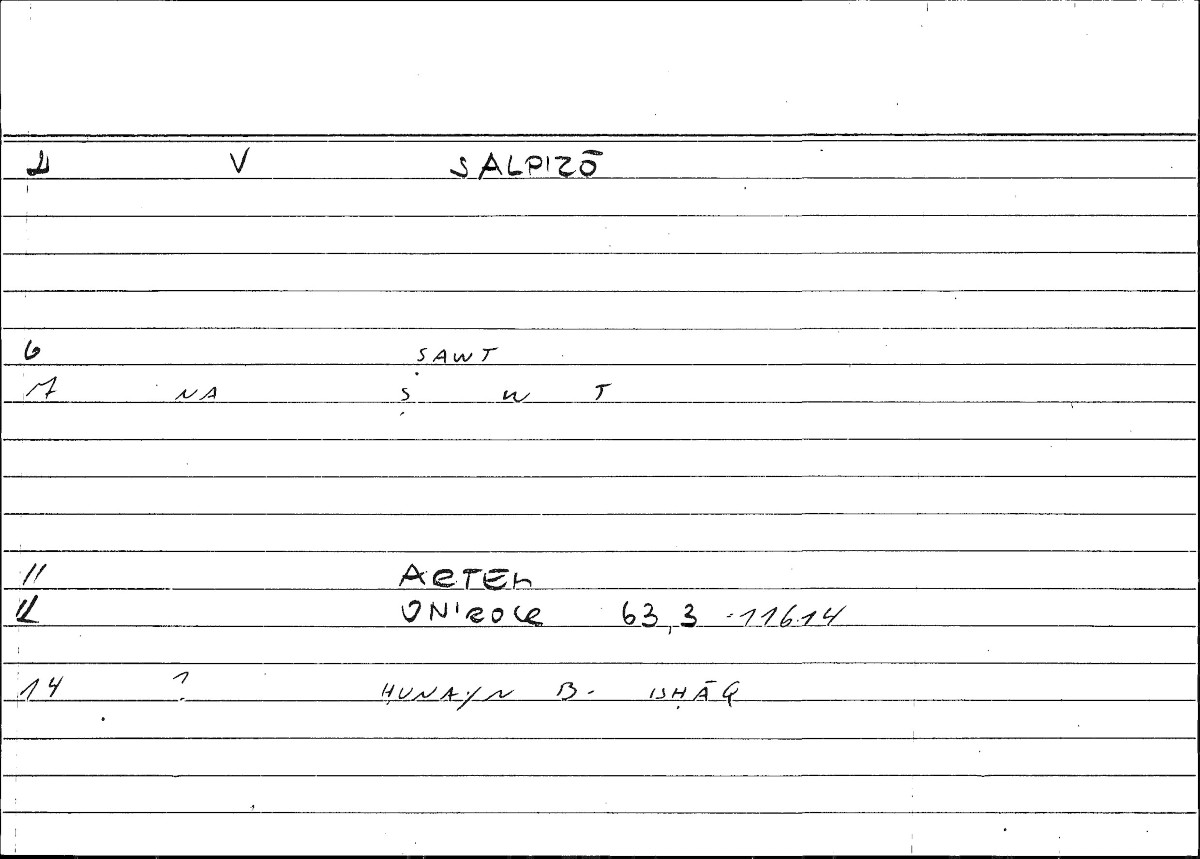 1 V SALPIZŌ
6 ṢAWT
7 NA Ṣ W T
11 ARTEM
12 ONIROCR 63,3 - 116.14
14 ? ḤUNAYN B. ISḤĀQ